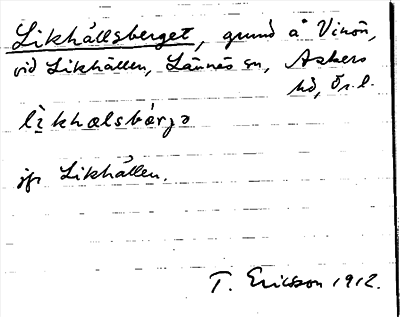 Likhällsberget, grund å Vinön,
vid Likhällen, Lännäs sn, Askers
hd, Ör. l.
lì̱khælsbǽrjə
jfr Likhällen.
T. Ericsson 1912.